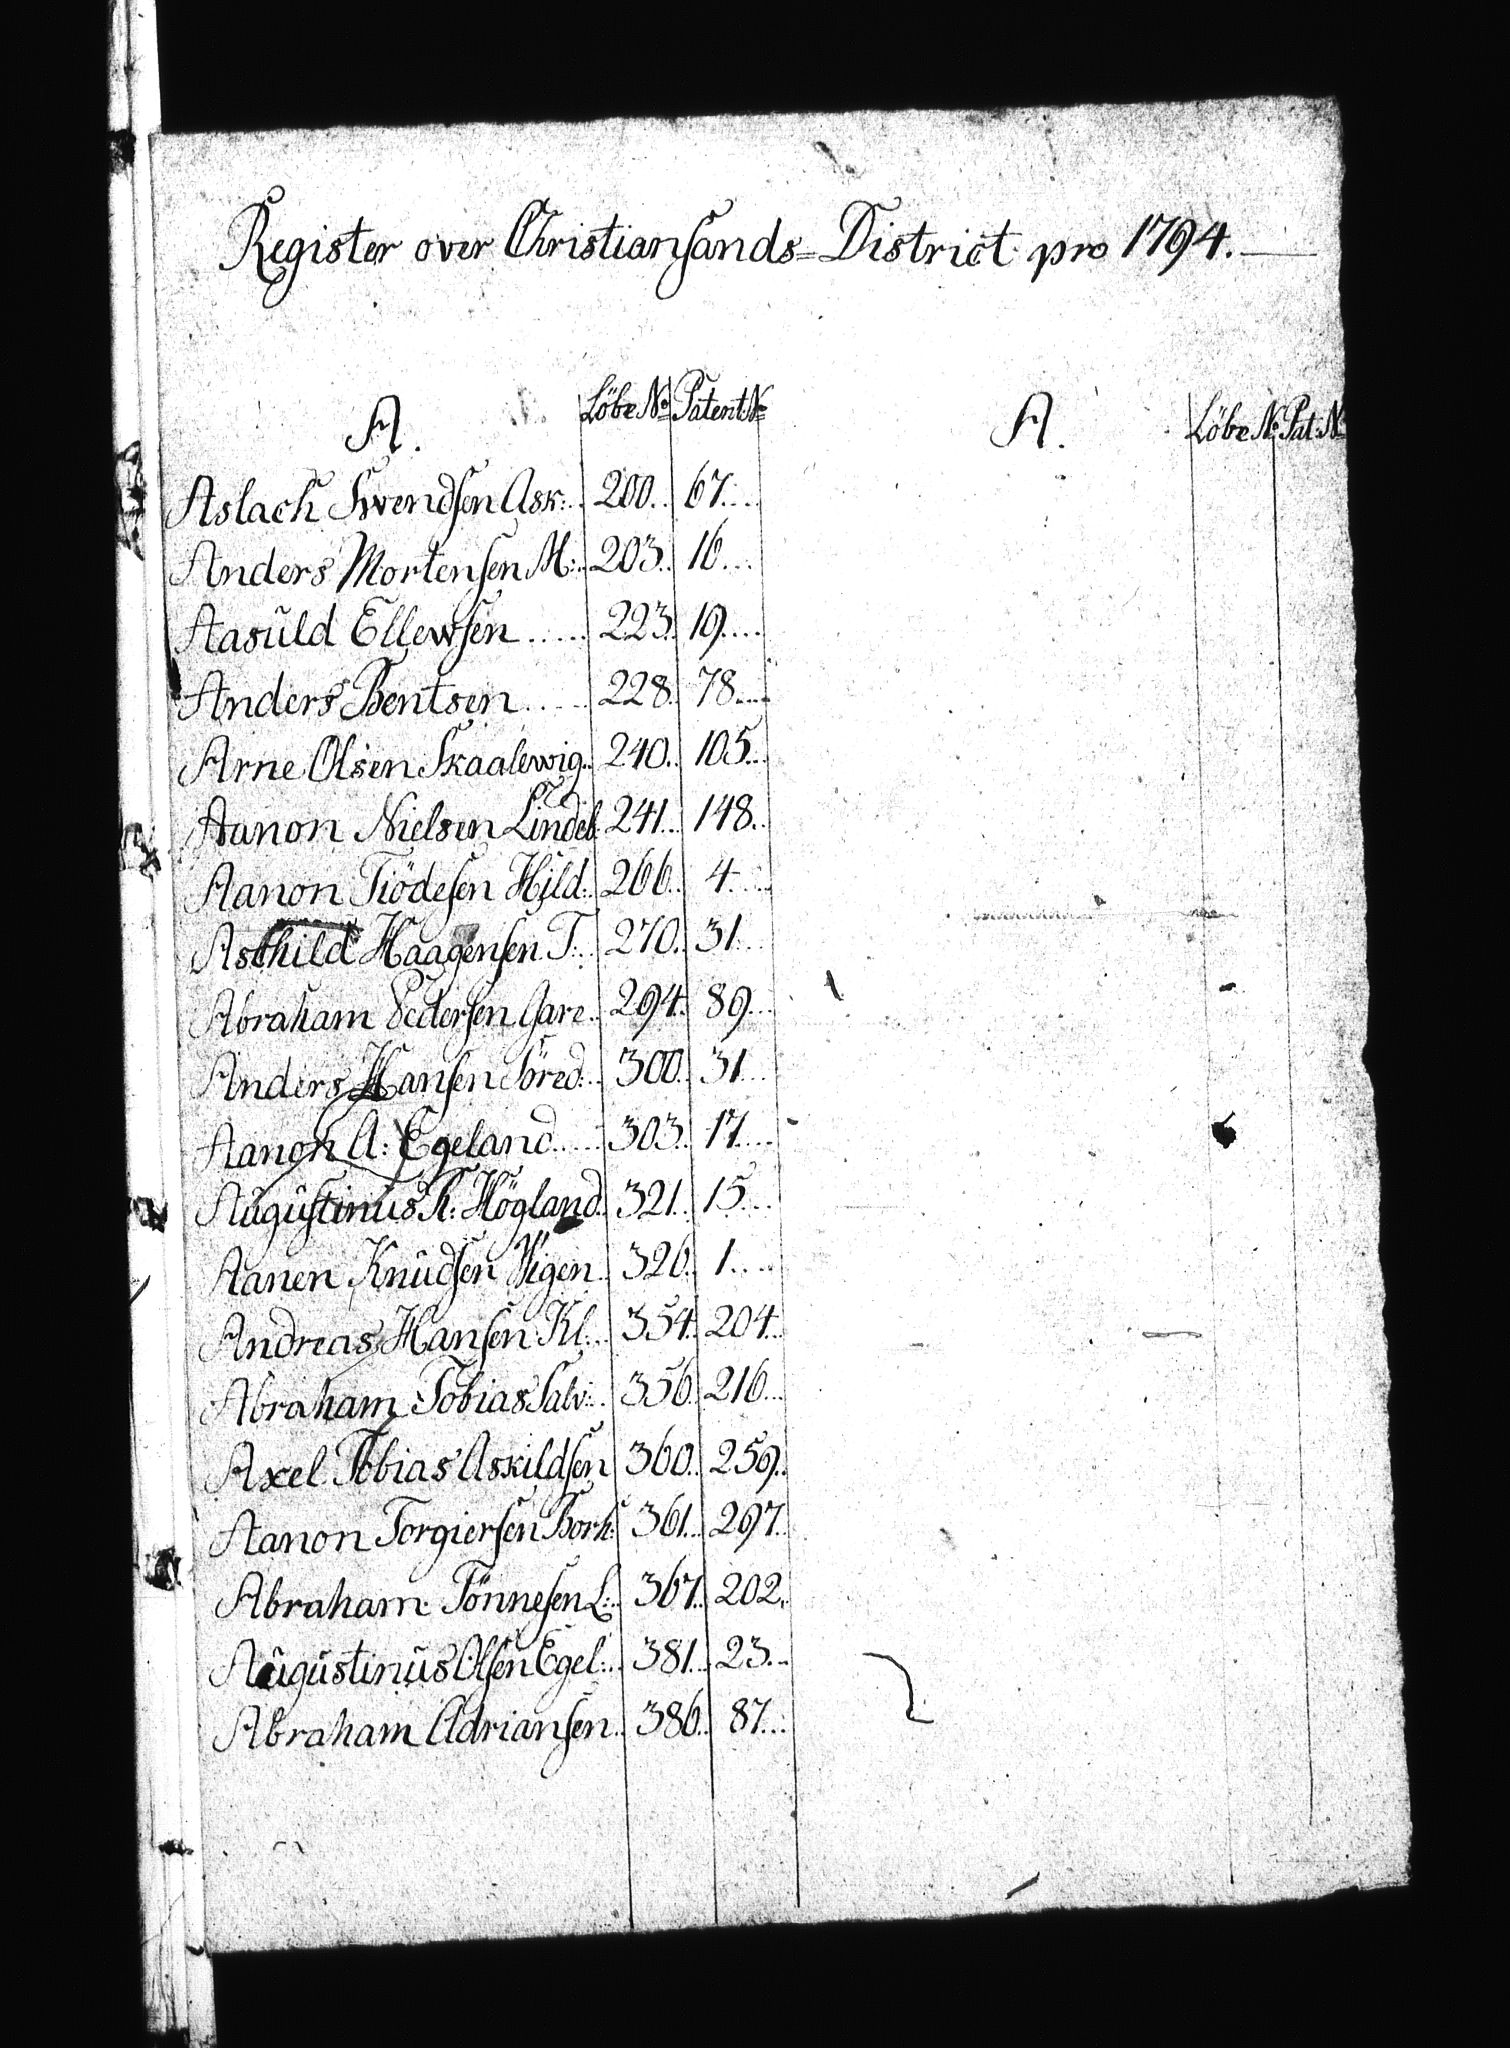 Register over Christiansands=District pro 1794.
A. Löbe No Patent No A. Löbe No Pat: No
Aslach Swendsen Ask: 200. 67.
Anders Mortensen M: 203. 16.
Aasuld Ellewsen 223. 19.
Anders Bentsen 228. 78.
Arne Olsen Skaalewig 240. 105.
Aanon Nielsen Lindeb: 241. 148.
Aanon Tiödesen Hild: 266. 4.
Askhild Haagensen T: 270. 31.
Abraham Pedersen Gare 294. 89.
Anders Hansen Söred: 300. 31.
Aanon A: Egeland 303. 17.
Augustinus K: Högland 321. 15.
Aanen Knudsen Wigen 326. 1.
Andreas Hansen Kl: 354. 204.
Abraham Tobias Salv: 356. 216.
Axel Tobias Askildsen 360. 259.
Aanon Torgiersen Bork: 361. 297.
Abraham Tönnesen L: 367. 202.
Augustinus Olsen Egel: 381. 23.
Abraham Adriansen 386. 87.